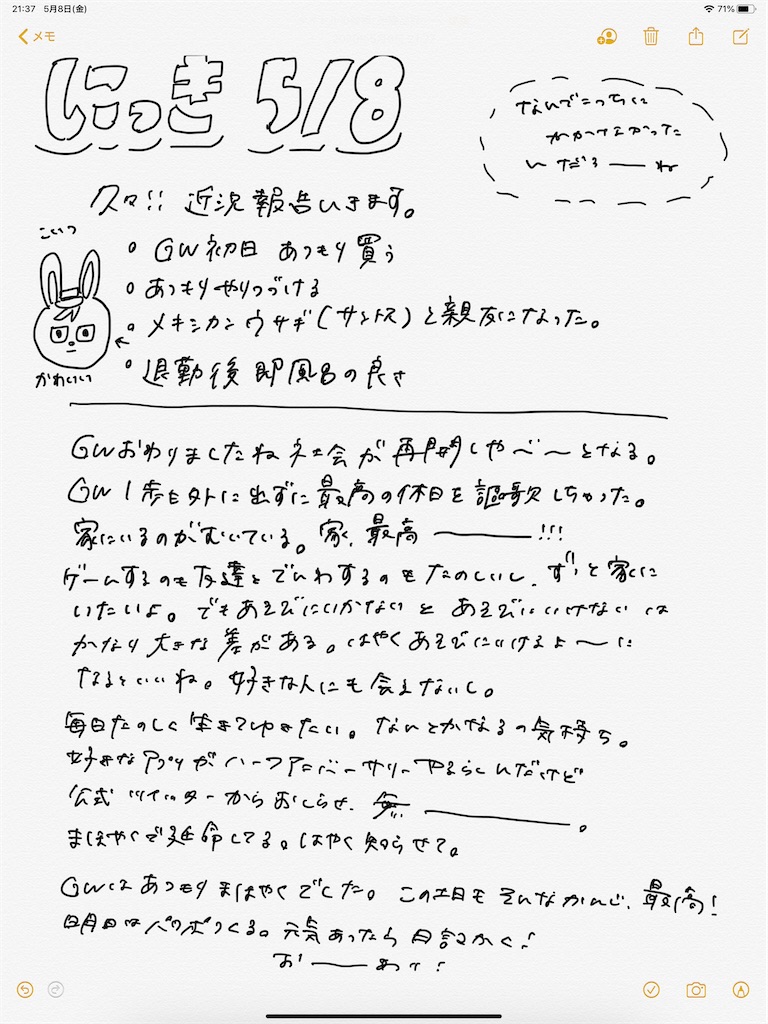 21:37 5月8日(金)
71%
メモ
にっき 5/8
なんでこっちに
かかけなかった
んだろーね
久々!! 近況報告いきます。
こいつ
GW初日 あつもり買う
あつもりやりつづける
メキシカンウサギ(サントス)と親友になった。
退勤後即風呂の良さ
かわいい
GWおわりましたね 社会が再開しやべ〜となる。
GW1歩も外に出ずに最高の休日を謳歌しちゃった。
家にいるのがむいている。家、最高ー!!!
ゲームするのも友達とでんわするのもたのしいし、ずっと家に
いたいよ。でもあそびにいかないとあそびにいけないは
かなり大きな差がある。はやくあそびにいけるよ〜に
なるといいね。好きな人にも会えないし。
毎日たのしく生きてゆきたい。なんとかなるの気持ち。
好きなアプリがハーフアニバーサリーやるらしいんだけど
公式ツイッターからおしらせ、無ー。
まほやくで延命してる。はやく知らせて。
GWはあつもりまほやくでした。この土日もそんなかんじ、最高!
明日はパワポつくる。元気あったら日記かく!
おーわり!